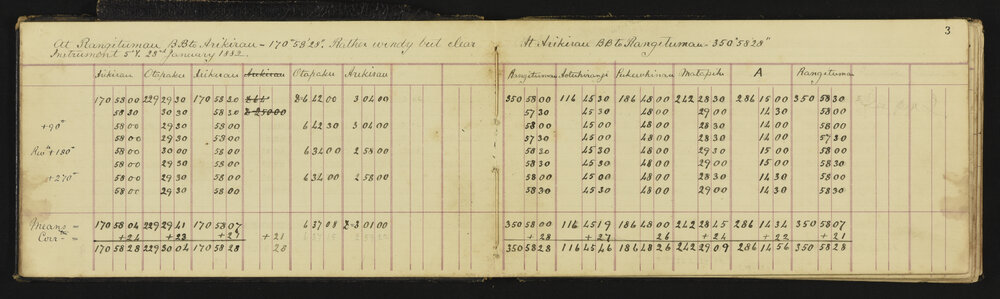 3
At Rangitumau BB to Arikirau - 170° 58' 28". Rather windy but clear
Instrument 5"T. 28th January 1882
Arikirau Otapaku Arikirau Arikirau Otapaku Arikirau
170 58 00 229 29 30 170 58 30 6 42 00 3 04 00
58 30 30 30 58 30
+90° 58 00 29 30 58 00 6 42 30 3 04 00
58 00 29 30 59 00
+180° 58 00 29 30 58 00 6 34 00 2 58 00
58 00 30 00 58 00
+270° 58 00 29 30 58 00 6 34 00 2 58 00
58 00 29 30 58 00
Means = 170 58 04 229 29 41 170 58 07 6 37 08 3 01 00
Corr = +24 +23 +21 +21
170 58 28 229 30 04 170 58 28 28
At Arikirau BB to Rangitumau - 350° 58 28"
Rangitumau Pukewhinau Matapihi A Rangitumau
350 58 00 116 45 30 186 48 00 242 28 30 286 15 00 350 58 30
57 30 45 30 48 00 29 00 14 30 58 00
58 00 45 00 48 00 28 30 14 00 58 00
57 30 45 30 48 00 28 30 14 00 57 30
58 00 45 00 48 00 29 30 15 00 58 00
58 30 45 30 48 00 29 00 15 00 58 30
58 00 45 00 48 00 28 30 14 30 58 00
58 30 45 30 48 00 29 00 14 30 58 30
350 58 00 116 45 19 186 48 00 242 28 45 286 14 34 350 58 07
+28 +27 26 +24 +22 +21
350 58 28 116 45 46 186 48 26 242 29 09 286 14 56 350 58 28